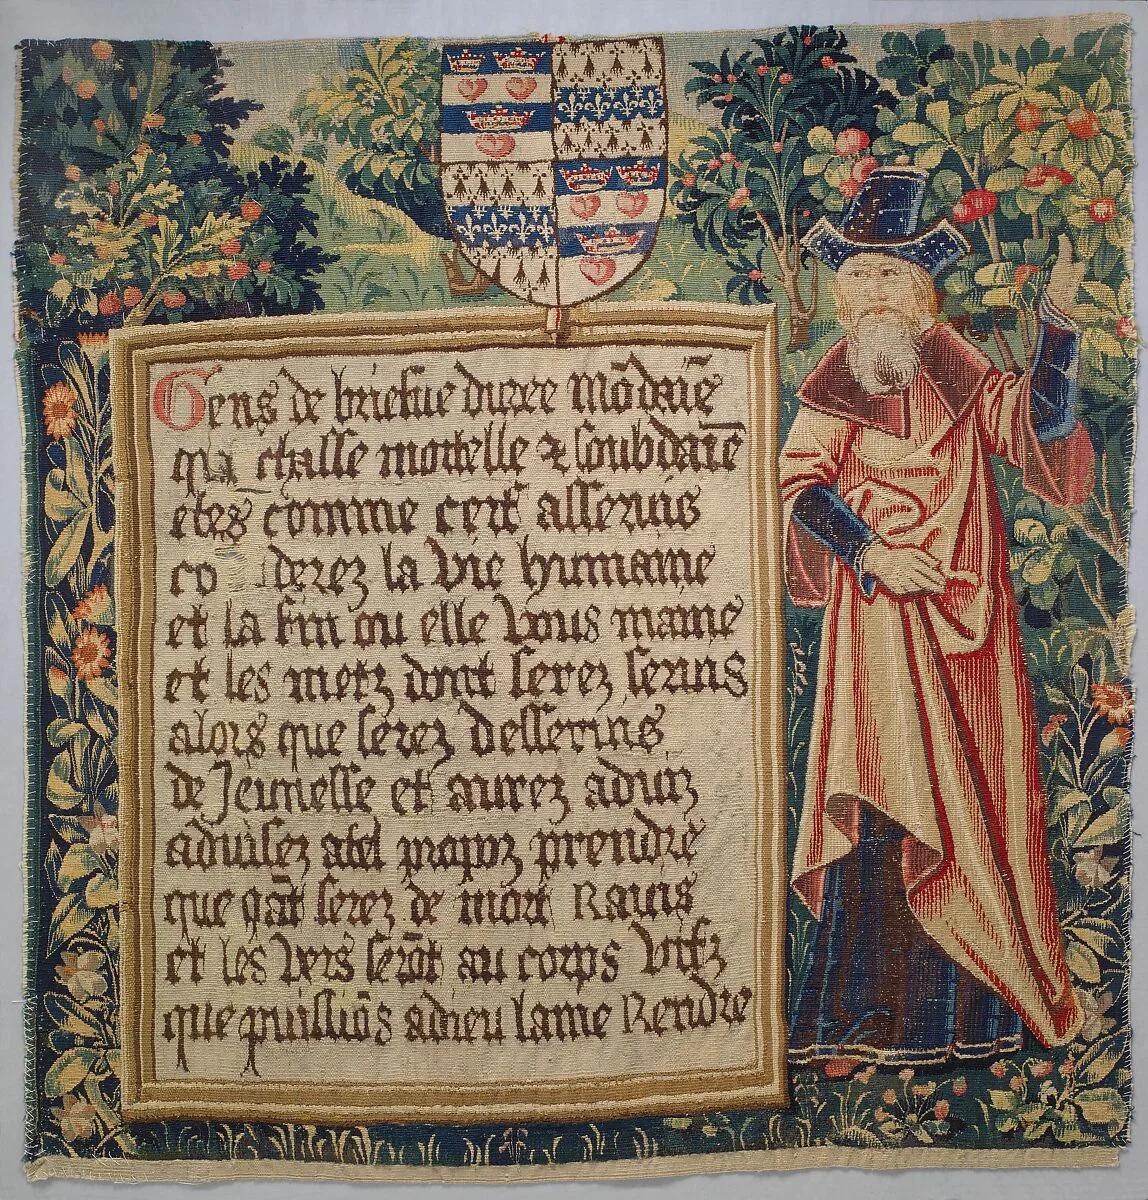 Gens de briefue duree mõdaïe
qui chasse mortelle & soubdaïe
etes comme cerf asseruis
co derez la vie humaine
et la fin ou elle vous maine
et les metz dont serez seruis
alors que serez desseruis
de Jeunesse et aurez aduiz
aduisez atel propoz prendre
que qãt serez de mort Rauis
et les vers serõt au corps vifz
que puissiõs adieu lame Rendre